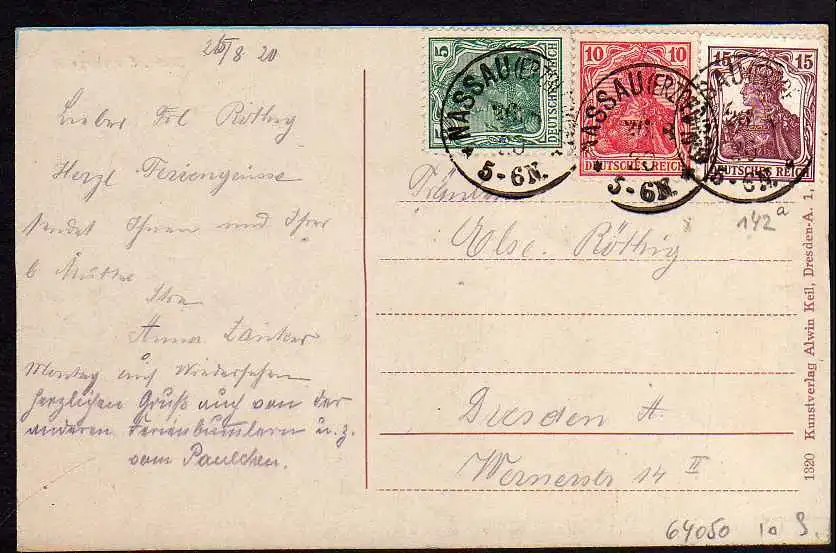 26/8 20
Lieber Frl Röthig
Herzl Feriengrüsse
sendet Ihnen und Ihrer
l Mutter
Ihre
Anna Zanker
Montag auf Wiedersehen
herzlichen Gruß auch von der
anderen Ferienbumlern u. z.
vom Paulchen.
5
DEUTSCHES REICH
10 10
DEUTSCHES REICH
15 15
DEUTSCHES REICH
NASSAU (ERZGEB.)
5-6N.
NASSAU (ERZGEB.)
5-6N.
NASSAU
5-6N.
142a
Fräulein
Else Röthig
Dresden A.
Wernerstr 14 II
1320 Kunstverlag Alwin Keil, Dresden-A. 1,
64050 1a S.